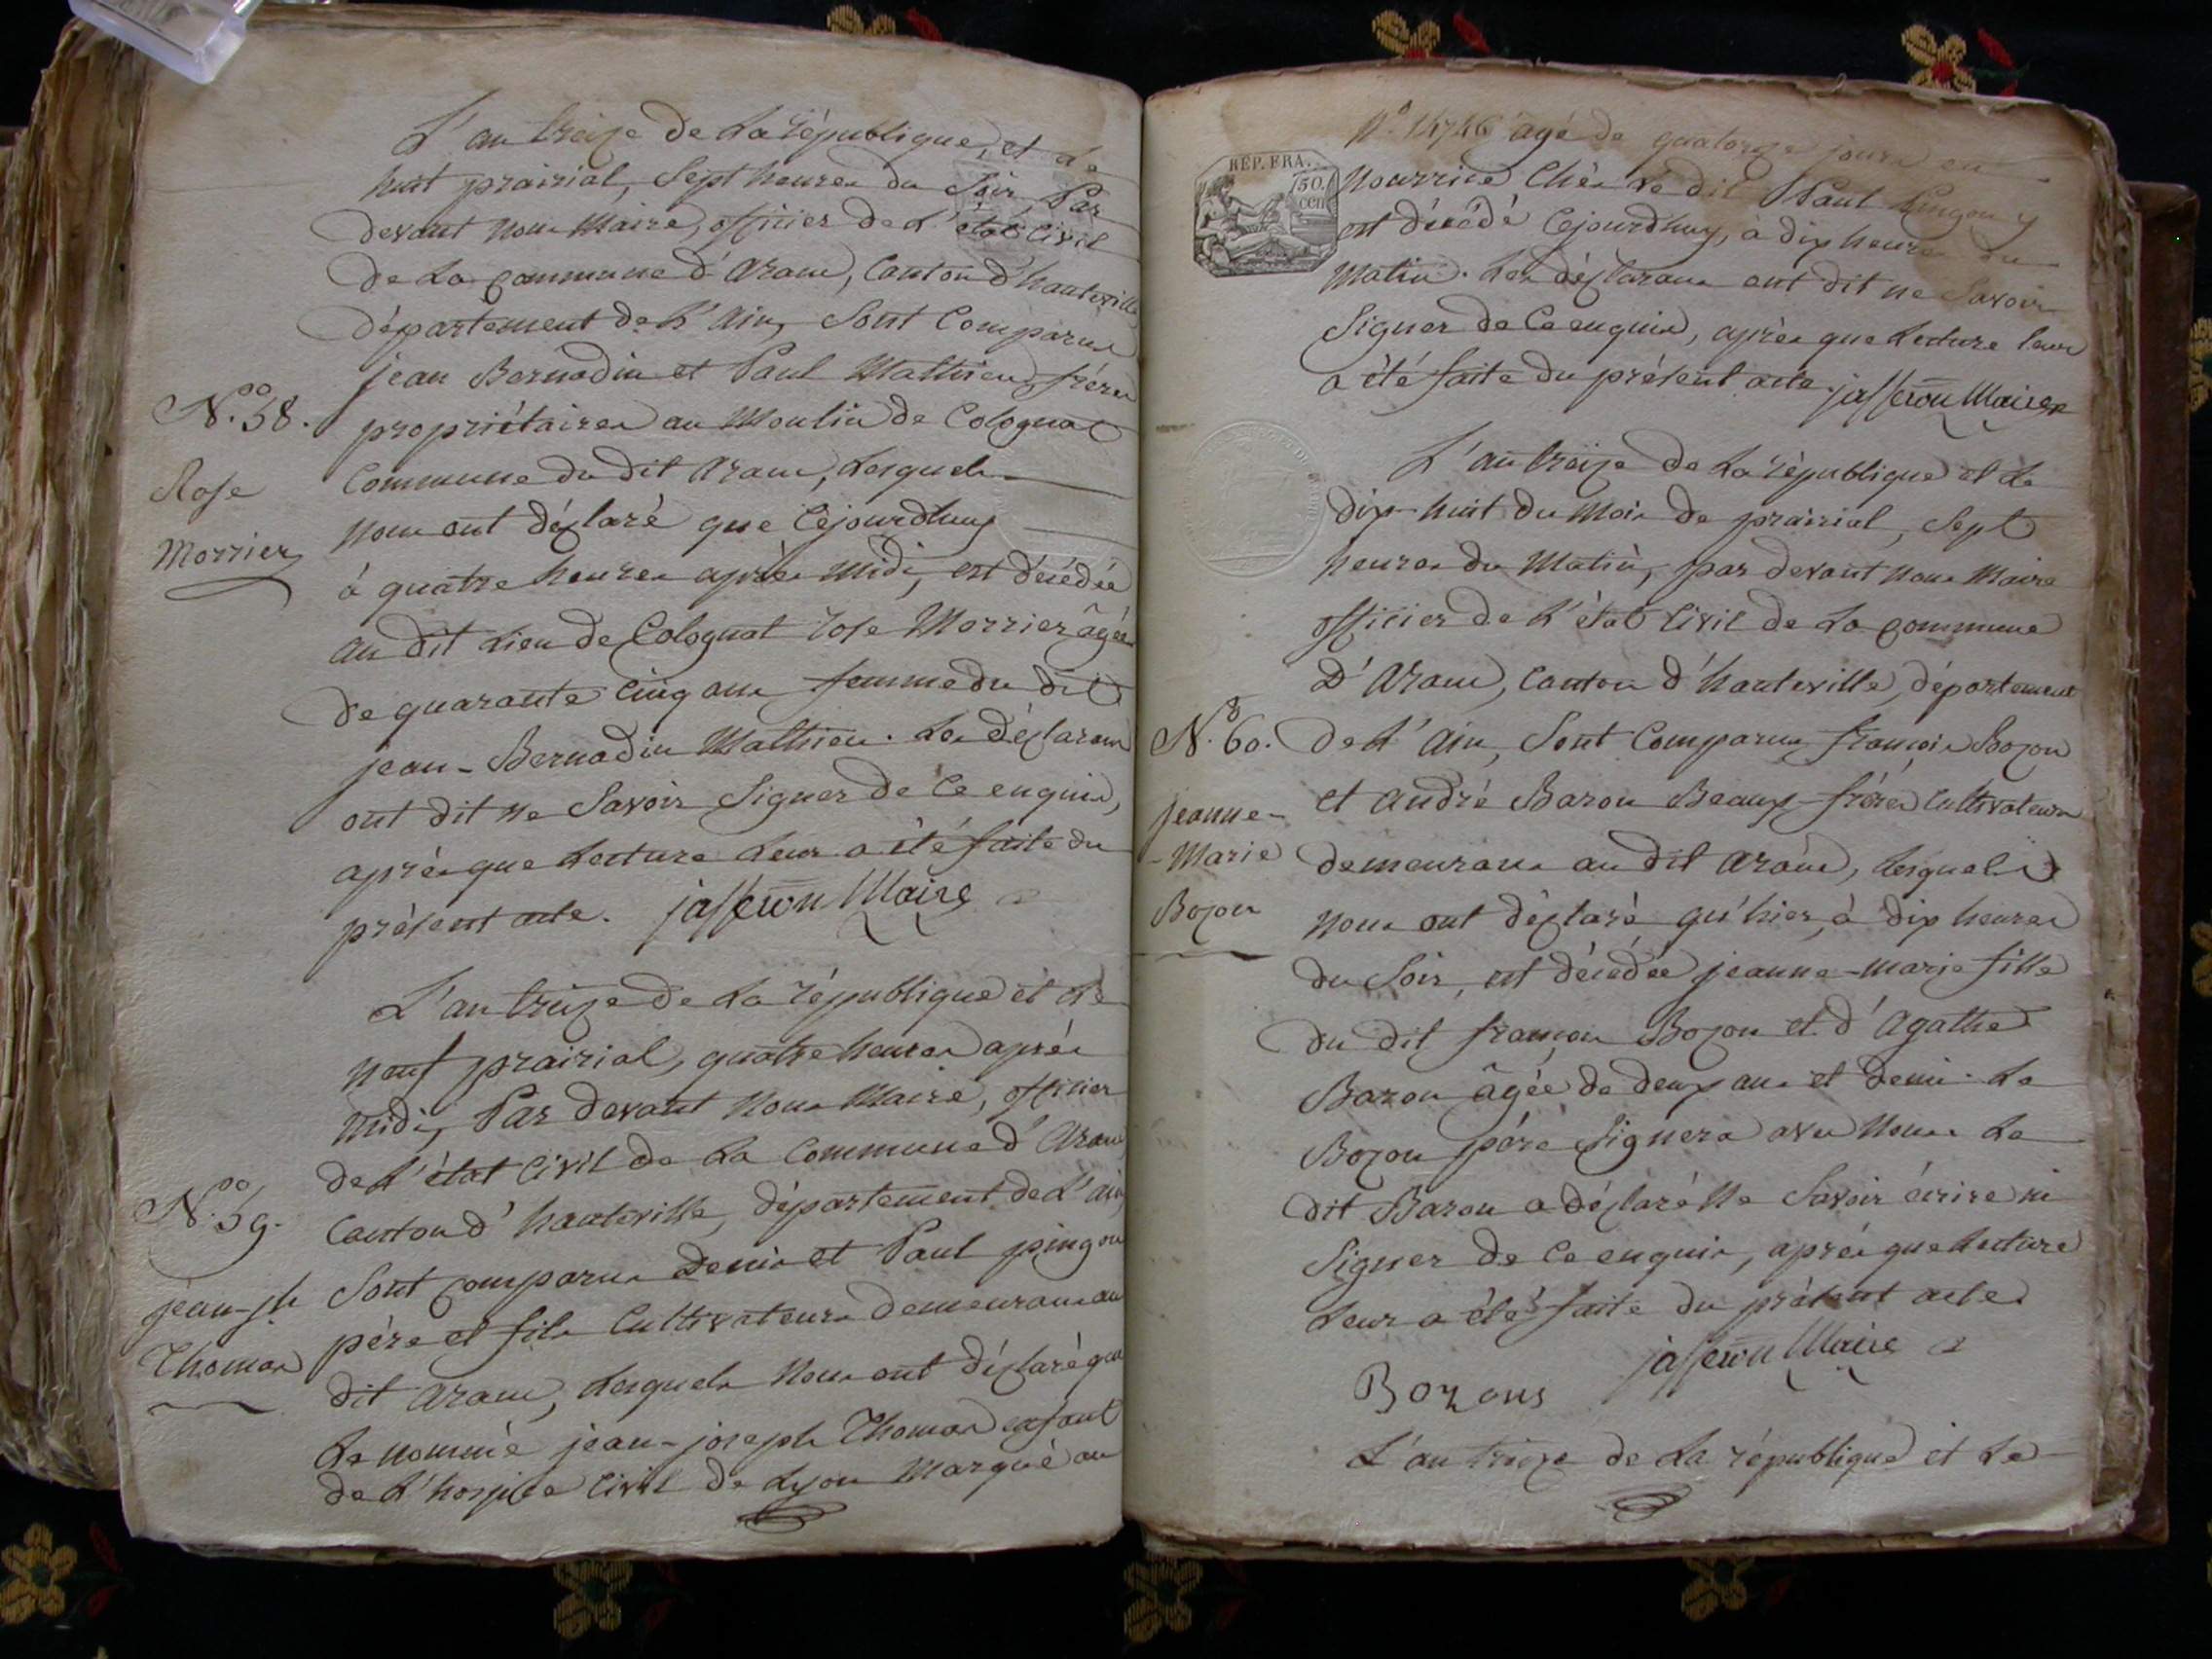 L'an treize de la république, et le
huit prairial, Sept heures du Soir, Par
devant nous Maire, officier de l'état Civil
de la Commune d'Aranc, Canton d'hauteville
département de l'Ain, Sont Comparus
jean Bernadin et Paul Mathieu, frères
N.° 58. propriétaires au Moulin de Colognat
Rose
Morrier
Commune du dit Aranc, lesquels
nous ont déclaré que Cejourdhuy
à quatre heures après midi, est décédée
au dit lieu de Colognat rose Morrier âgée
de quarante cinq ans femme du dit
jean-Bernadin Mathieu. Les déclarans
ont dit ne Savoir Signer de Ce enquis,
après que lecture leur a été faite du
présent acte. jasseron Maire
L'an treize de la république et le
neuf prairial, quatre heures après
midi, Par devant nous Maire, officier
de l'état Civil de la Commune d'Aranc
N.° 59. Canton d'hauteville, département de l'ain
jean-jh
Thomas
Sont Comparus Denis et Paul pingon
père et fils Cultivateurs demeurans au
dit Aranc, lesquels nous ont déclaré que
le nommé jean-joseph Thomas enfant
de l'hospice Civil de Lyon Marqué au
N.° 14746 âgé de quatorze jours en
REP. FRA.
50.
cen
nourrice Chès le dit Paul Pingon y
est décédé Cejourdhuy, à dix heures du
Matin. Les déclarans ont dit ne Savoir
Signer de Ce enquis, après que lecture leur
a été faite du présent acte. jasseron Maire
L'an treize de la république et le
dix-huit du Mois de prairial, Sept
heures du Matin, par devant nous Maire
officier de l'état Civil de la Commune
D'Aranc, Canton d'hauteville, département
N.° 60. de l'Ain, Sont Comparus françois Bozon
jeanne-
-Marie
Bozon
et andré Baron Beaux-frères Cultivateurs
demeurans au dit Aranc, lesquels
nous ont déclaré qu'hier, à dix heures
du Soir, est décédée jeanne-marie fille
du dit françois Bozon et d'Agathe
Baron âgée de deux ans et demi. Le
Bozon père Signera avec nous Le
dit Baron a déclaré ne Savoir écrire ni
Signer de Ce enquis, après que lecture
leur a été faite du présent acte.
jasseron Maire
Bozons
L'an treize de la république et le